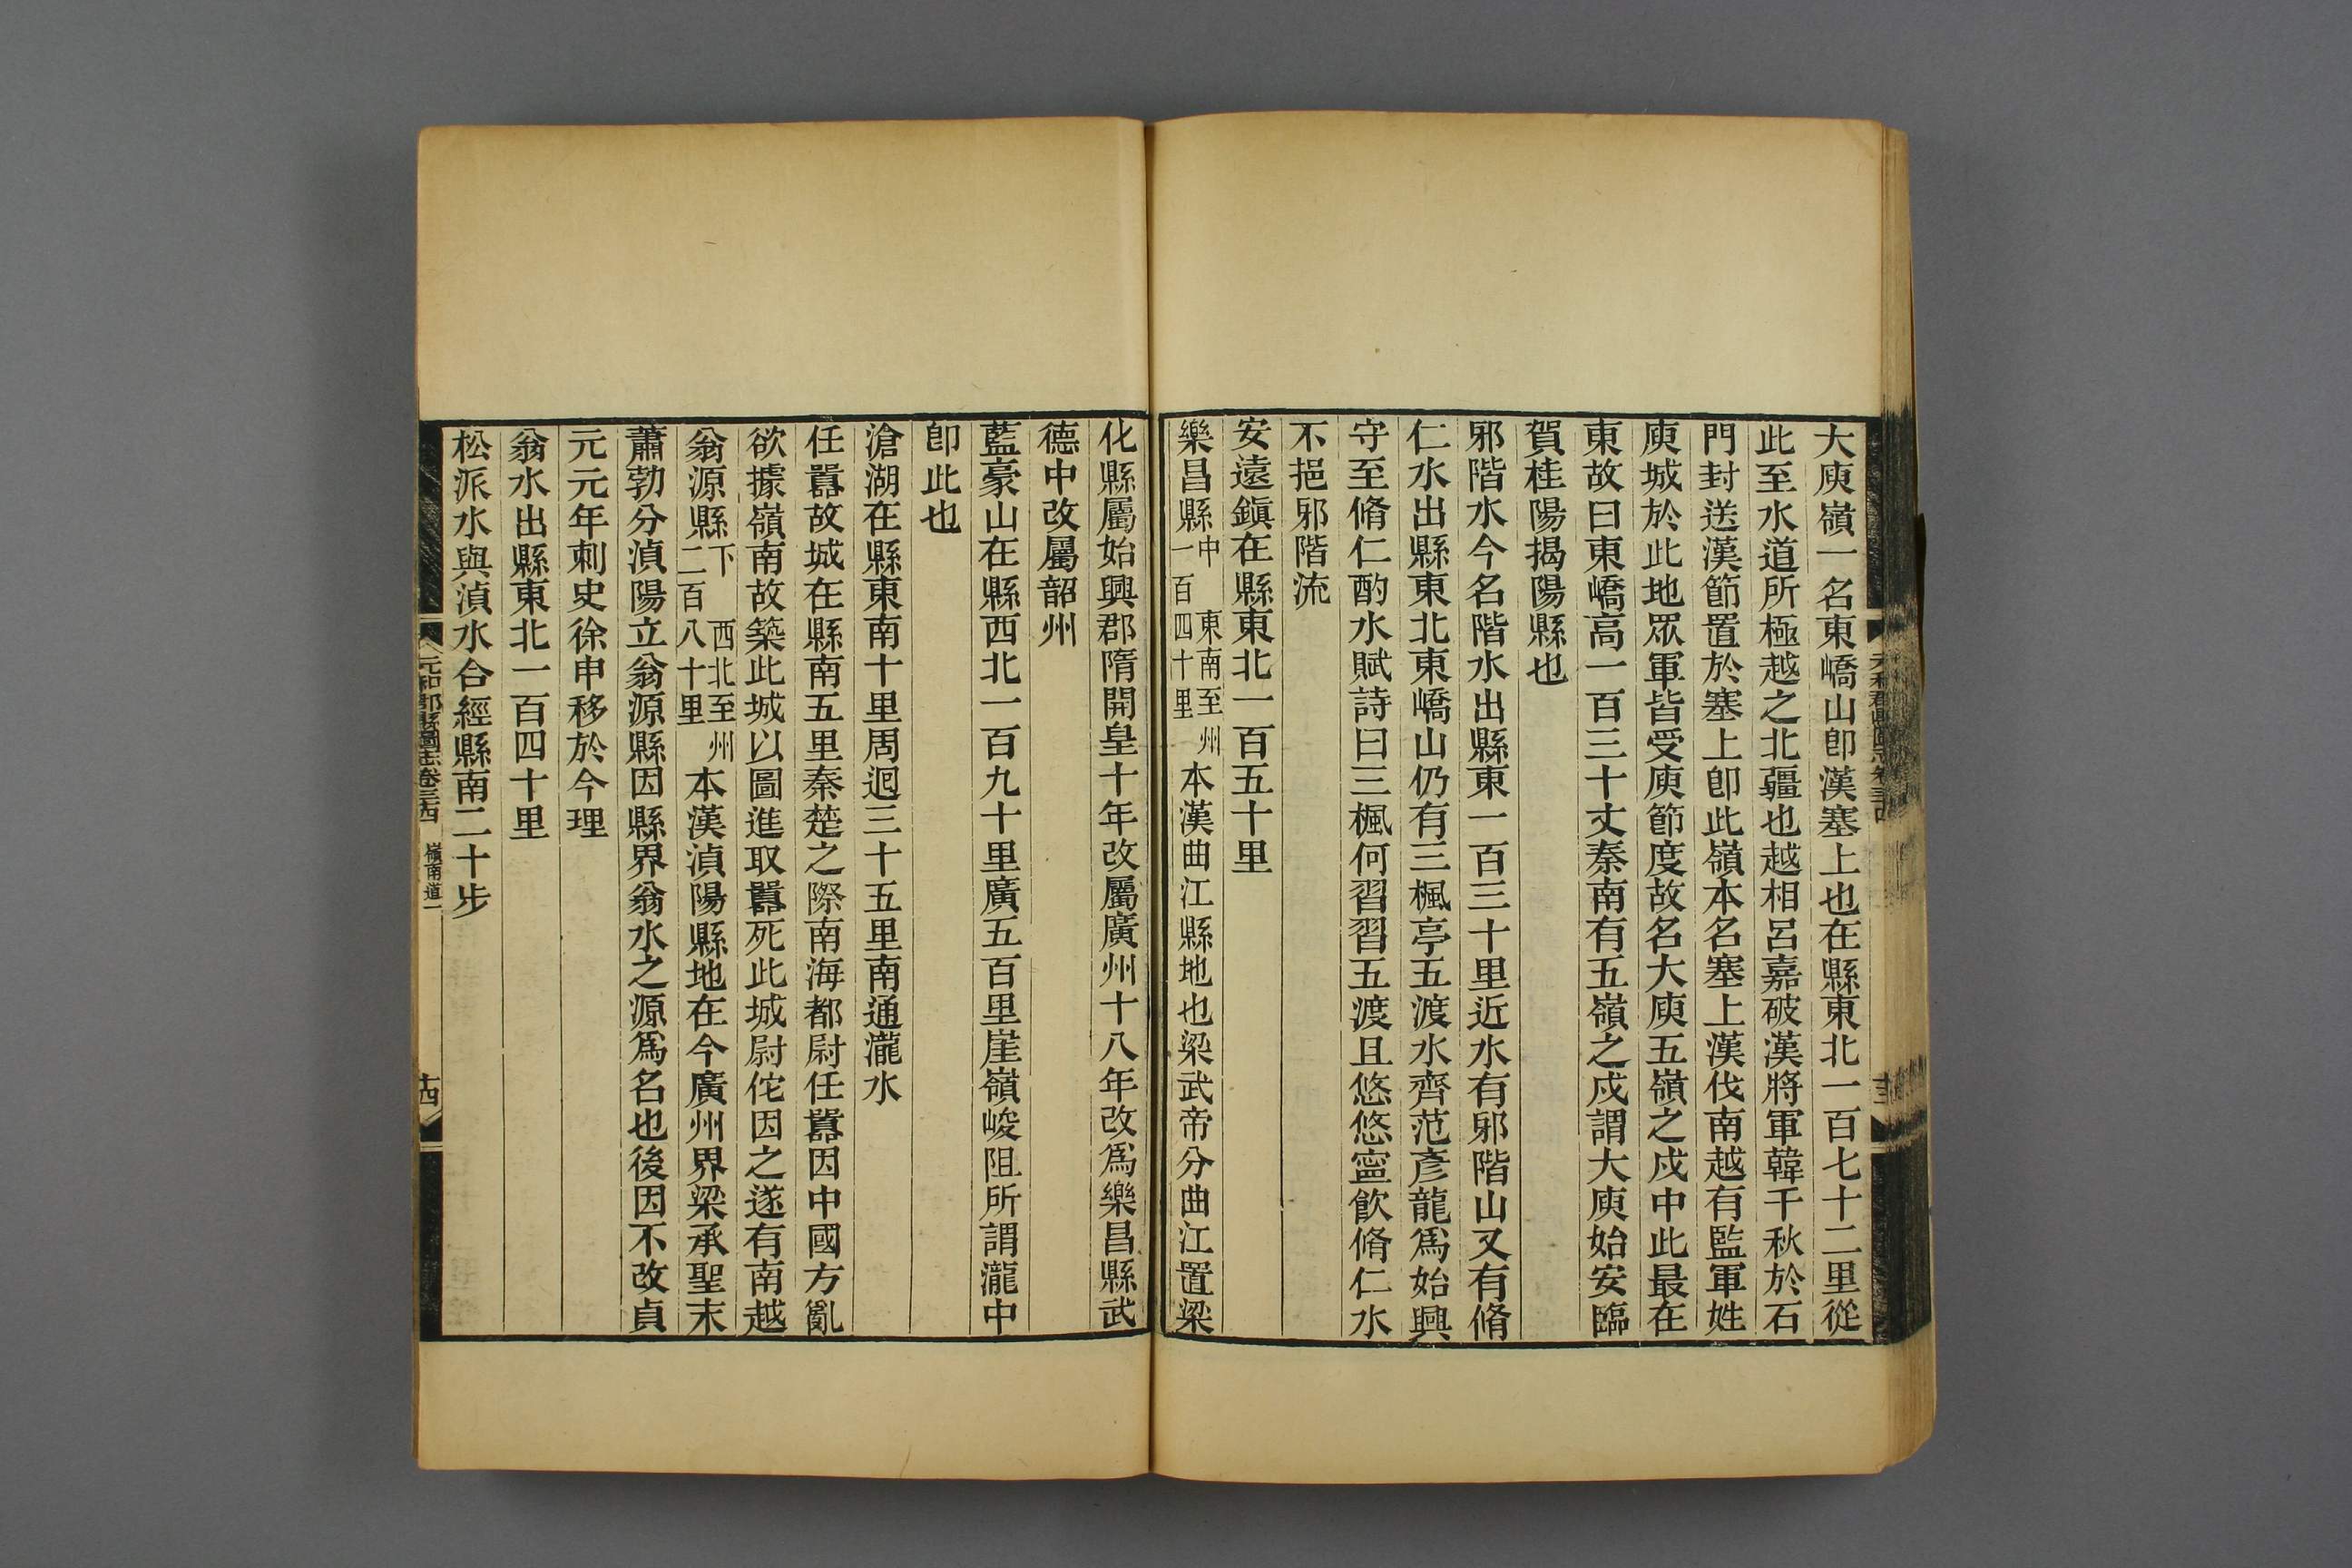 大庾嶺一名東嶠山卽漢塞上也在縣東北一百七十二里從
此至水道所極越之北疆也越相呂嘉破漢將軍韓千秋於石
門封送漢節置於塞上卽此嶺本名塞上漢伐南越有監軍姓
庾城於此地眾軍皆受庾節度故名大庾五嶺之戍中此最在
東故曰東嶠高一百三十丈秦南有五嶺之戍謂大庾始安臨
賀桂陽揭陽縣也
邪階水今名階水出縣東一百三十里近水有邪階山又有脩
仁水出縣東北東嶠山仍有三楓亭五渡水齊范彥龍爲始興
守至脩仁酌水賦詩曰三楓何習習五渡且悠悠寍飮脩仁水
不挹邪階流
安遠鎭在縣東北一百五十里
樂昌縣中 東南至州一百四十里 本漢曲江縣地也梁武帝分曲江置梁
化縣屬始興郡隋開皇十年改屬廣州十八年改爲樂昌縣武
德中改屬韶州
藍豪山在縣西北一百九十里廣五百里崖嶺峻阻所謂瀧中
卽此也
滄湖在縣東南十里周迴三十五里南通瀧水
任囂故城在縣南五里秦楚之際南海都尉任囂因中國方亂
欲據嶺南故築此城以圖進取囂死此城尉佗因之遂有南越
翁源縣下 西北至州二百八十里 本漢湞陽縣地在今廣州界梁承聖末
蕭勃分湞陽立翁源縣因縣界翁水之源爲名也後因不改貞
元元年刺史徐申移於今理
翁水出縣東北一百四十里
松派水與湞水合經縣南二十步
元和郡縣圖志卷三四 嶺南道一 十四